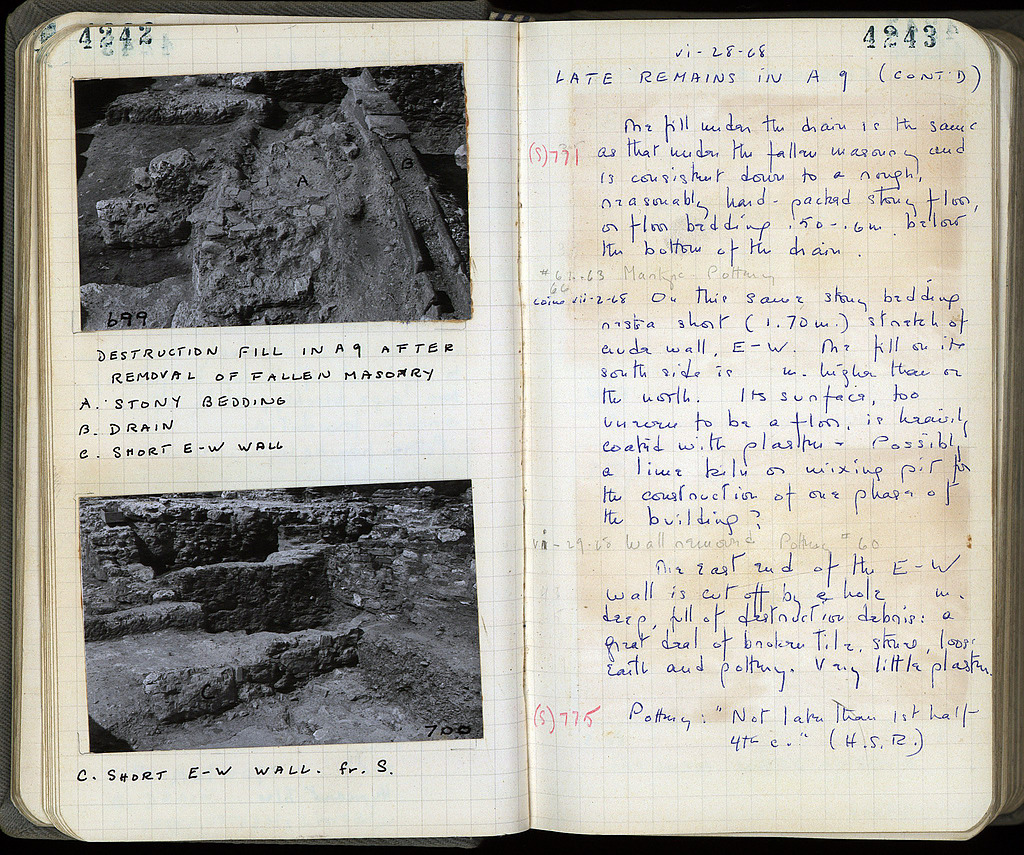 4242
B
A
C
699
DESTRUCTION FILL IN A9 AFTER
REMOVAL OF FALLEN MASONRY
A. STONY BEDDING
B. DRAIN
C. SHORT E-W WALL
C
700
C. SHORT E-W WALL. fr. S.
4243
vi-28-68
LATE REMAINS IN A 9 (CONT'D)
The fill under the drain is the same
(S)771 as that under the fallen masonry and
is consistent down to a rough,
reasonably hard-packed stony floor,
or floor bedding .50-.60m. below
the bottom of the drain.
#62-63 Pottery
66
coins vii-2-68 On this same stony bedding
rests a short (1.70m.) stretch of
crude wall, E-W. The fill on its
south side is m. higher than on
the north. Its surface, too
uneven to be a floor, is heavily
coated with plaster - Possibly
a lime kiln or mixing pit for
the construction of one phase of
the building?
vi-29-68 Wall removed Pottery #60
The east end of the E-W
wall is cut off by a hole m.
deep, full of destruction debris: a
great deal of broken tile, stone, loose
earth and pottery. Very little plaster.
(S)775 Pottery: "Not later than 1st half
4th c." (H.S.R.)